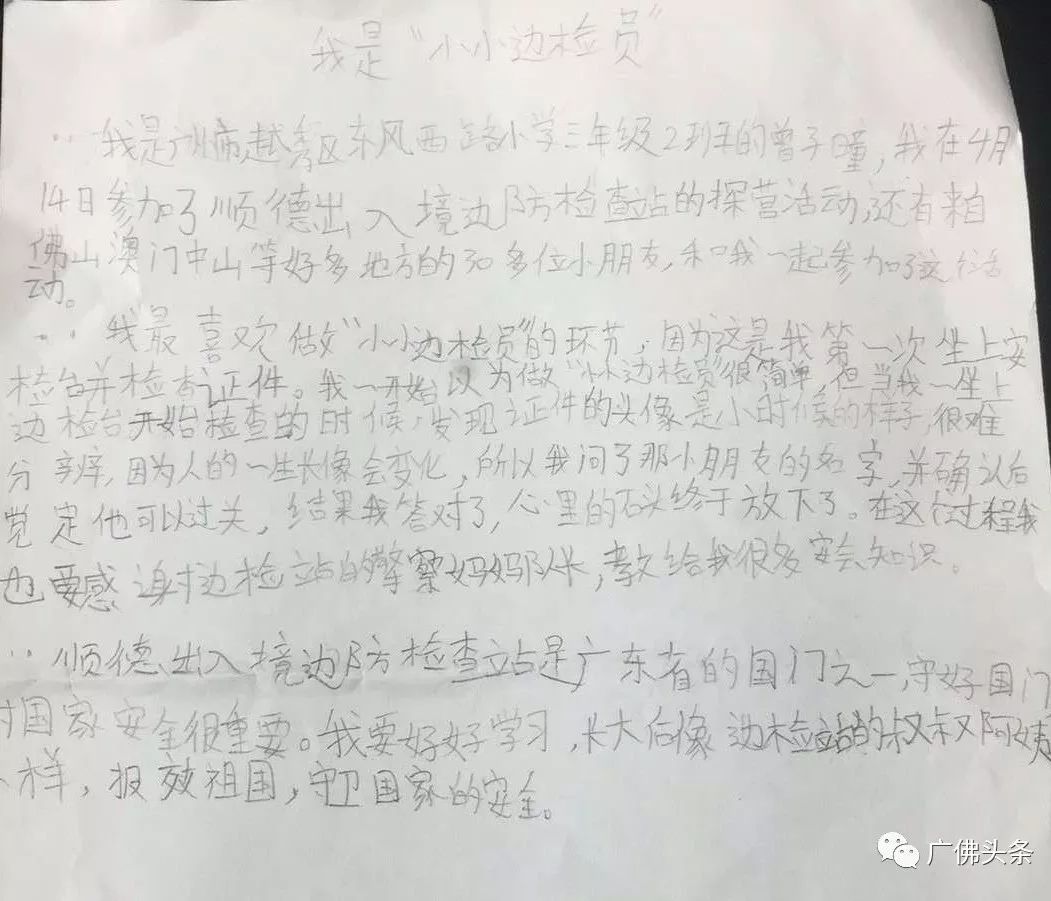 我是“小小边检员”
我是广州市越秀区东风西路小学三年级2班的曾子瞳，我在4月
14日参加了顺德出入境边防检查站的探营活动，还有来自
佛山澳门中山等好多地方的30多位小朋友，和我一起参加了这个活
动。
我最喜欢做“小小边检员”的环节，因为这是我第一次坐上安
检台并检查证件。我一开始以为做“小小边检员”很简单，但当我一坐上
边检台开始检查的时候，发现证件的头像是小时候的样子，很难
分辨，因为人的一生长像会变化，所以我问了那小朋友的名字，并确认后
觉定他可以过关，结果我答对了，心里的石头终于放下了。在这个过程我
也要感谢边检站的警察妈妈队长，教给我很多安全知识。
顺德出入境边防检查站是广东省的国门之一，守好国门
对国家安全很重要。我要好好学习，长大后像边检站的叔叔阿姨
一样，报效祖国，守卫国家的安全。
广佛头条